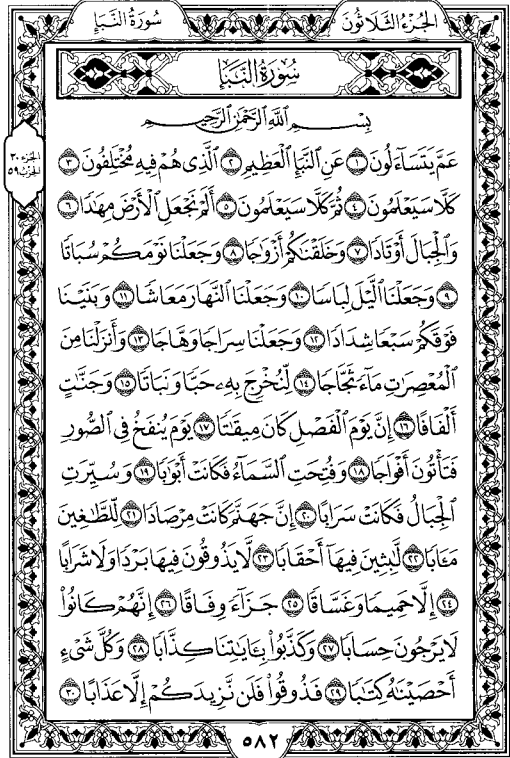 الجزء الثلاثون
سورة النبإ
سورة النبإ
بِسْمِ ٱللَّهِ ٱلرَّحْمَٰنِ ٱلرَّحِيمِ
الجزء ٣٠
الحزب ٥٩
عَمَّ يَتَسَآءَلُونَ ١ عَنِ ٱلنَّبَإِ ٱلْعَظِيمِ ٢ ٱلَّذِى هُمْ فِيهِ مُخْتَلِفُونَ ٣
كَلَّا سَيَعْلَمُونَ ٤ ثُمَّ كَلَّا سَيَعْلَمُونَ ٥ أَلَمْ نَجْعَلِ ٱلْأَرْضَ مِهَٰدًا ٦
وَٱلْجِبَالَ أَوْتَادًا ٧ وَخَلَقْنَٰكُمْ أَزْوَٰجًا ٨ وَجَعَلْنَا نَوْمَكُمْ سُبَاتًا
٩ وَجَعَلْنَا ٱلَّيْلَ لِبَاسًا ١٠ وَجَعَلْنَا ٱلنَّهَارَ مَعَاشًا ١١ وَبَنَيْنَا
فَوْقَكُمْ سَبْعًا شِدَادًا ١٢ وَجَعَلْنَا سِرَاجًا وَهَّاجًا ١٣ وَأَنزَلْنَا مِنَ
ٱلْمُعْصِرَٰتِ مَآءً ثَجَّاجًا ١٤ لِّنُخْرِجَ بِهِۦ حَبًّا وَنَبَاتًا ١٥ وَجَنَّٰتٍ
أَلْفَافًا ١٦ إِنَّ يَوْمَ ٱلْفَصْلِ كَانَ مِيقَٰتًا ١٧ يَوْمَ يُنفَخُ فِى ٱلصُّورِ
فَتَأْتُونَ أَفْوَاجًا ١٨ وَفُتِحَتِ ٱلسَّمَآءُ فَكَانَتْ أَبْوَٰبًا ١٩ وَسُيِّرَتِ
ٱلْجِبَالُ فَكَانَتْ سَرَابًا ٢٠ إِنَّ جَهَنَّمَ كَانَتْ مِرْصَادًا ٢١ لِّلطَّٰغِينَ
مَـَٔابًا ٢٢ لَّٰبِثِينَ فِيهَآ أَحْقَابًا ٢٣ لَّا يَذُوقُونَ فِيهَا بَرْدًا وَلَا شَرَابًا
٢٤ إِلَّا حَمِيمًا وَغَسَّاقًا ٢٥ جَزَآءً وِفَاقًا ٢٦ إِنَّهُمْ كَانُوا۟
لَا يَرْجُونَ حِسَابًا ٢٧ وَكَذَّبُوا۟ بِـَٔايَٰتِنَا كِذَّابًا ٢٨ وَكُلَّ شَىْءٍ
أَحْصَيْنَٰهُ كِتَٰبًا ٢٩ فَذُوقُوا۟ فَلَن نَّزِيدَكُمْ إِلَّا عَذَابًا ٣٠
٥٨٢